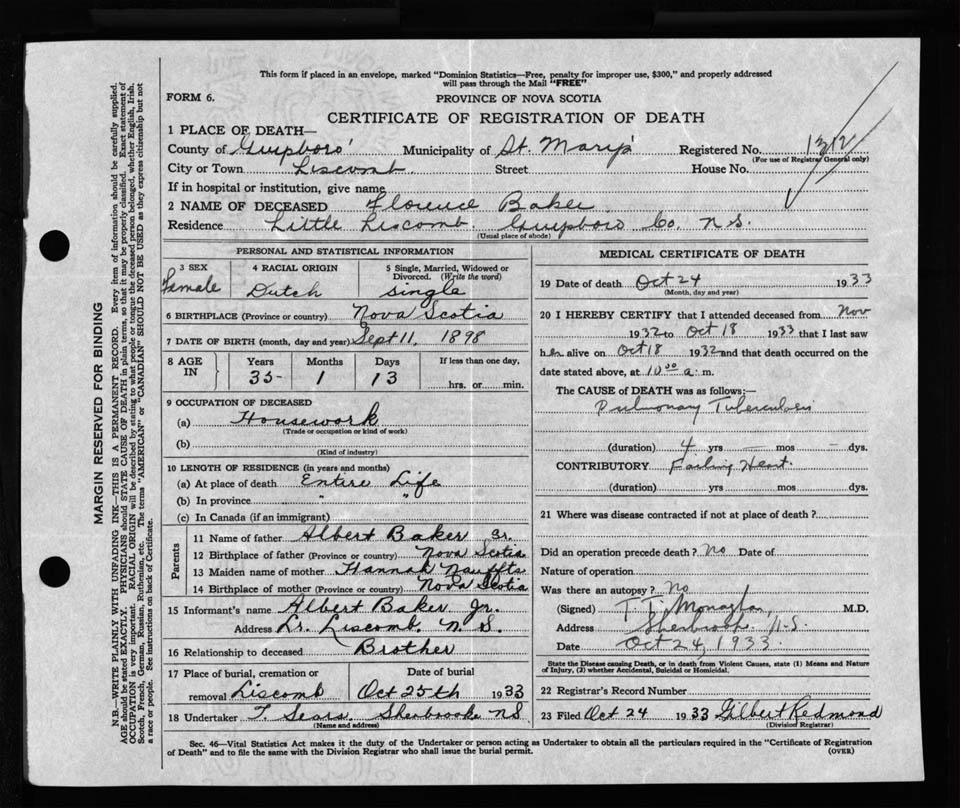 This form if placed in an envelope, marked "Dominion Statistics—Free, penalty for improper use, $300," and properly addressed
will pass through the Mail "FREE"
FORM 6.
PROVINCE OF NOVA SCOTIA
CERTIFICATE OF REGISTRATION OF DEATH
1 PLACE OF DEATH—
County of Guysboro' Municipality of St. Mary's Registered No. 1312
(For use of Registrar General only)
City or Town Liscomb. Street House No.
If in hospital or institution, give name
2 NAME OF DECEASED Florence Baker
Residence Little Liscomb. Guysboro Co. N.S.
(Usual place of abode)
PERSONAL AND STATISTICAL INFORMATION
3 SEX 4 RACIAL ORIGIN 5 Single, Married, Widowed or Divorced. (Write the word)
Famale Dutch single
6 BIRTHPLACE (Province or country) Nova Scotia
7 DATE OF BIRTH (month, day and year) Sept 11, 1898
8 AGE IN Years Months Days If less than one day,
35 1 13 hrs. or min.
9 OCCUPATION OF DECEASED
(a) Housework
(Trade or occupation or kind of work)
(b)
(Kind of industry)
10 LENGTH OF RESIDENCE (in years and months)
(a) At place of death Entire Life
(b) In province " "
(c) In Canada (if an immigrant)
Parents
11 Name of father Albert Baker Sr.
12 Birthplace of father (Province or country) Nova Scotia
13 Maiden name of mother Hannah Nauffts
14 Birthplace of mother (Province or country) Nova Scotia
15 Informant's name Albert Baker Jr.
Address Lr. Liscomb, N.S.
16 Relationship to deceased Brother
17 Place of burial, cremation or Date of burial
removal Liscomb Oct 25th 1933
18 Undertaker T. Sears Sherbrooke NS
(Name and address)
MEDICAL CERTIFICATE OF DEATH
19 Date of death Oct 24 1933
(Month, day and year)
20 I HEREBY CERTIFY that I attended deceased from Nov
1932 to Oct 18 1933 that I last saw
her alive on Oct 18 1932 and that death occurred on the
date stated above, at 10 30 a. m.
The CAUSE of DEATH was as follows:—
Pulmonary
(duration) 4 yrs — mos — dys.
CONTRIBUTORY Failing Heart.
(duration) yrs mos dys.
21 Where was disease contracted if not at place of death?
Did an operation precede death? No Date of
Nature of operation
Was there an autopsy? No
(Signed) M.D.
Address Sherbrooke N.S.
Date Oct 24, 1933.
State the Disease causing Death, or in death from Violent Causes, state (1) Means and Nature
of Injury, (2) whether Accidental, Suicidal or Homicidal.
22 Registrar's Record Number
23 Filed Oct 24 1933 Gilbert Redmond
(Division Registrar)
Sec. 46—Vital Statistics Act makes it the duty of the Undertaker or person acting as Undertaker to obtain all the particulars required in the "Certificate of Registration
of Death" and to file the same with the Division Registrar who shall issue the burial permit. (OVER)
MARGIN RESERVED FOR BINDING
N.B.—WRITE PLAINLY WITH UNFADING INK—THIS IS A PERMANENT RECORD. Every item of information should be carefully supplied.
AGE should be stated EXACTLY. PHYSICIANS should STATE CAUSE OF DEATH in plain terms, so that it may be properly classified. Exact statement of
OCCUPATION is very important. RACIAL ORIGIN will be described by stating to what people or tongue the deceased person belonged, whether English, Irish,
Scotch, French, German, Russian, Ruthenian, etc. The terms "AMERICAN" or "CANADIAN" SHOULD NOT BE USED as they express citizenship but not
a race or people. See instructions on back of Certificate.